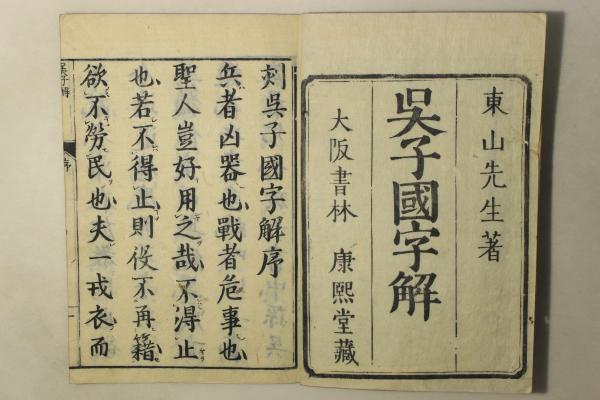 東山先生著
吳子國字解
大阪書林 康熙堂藏
刻吳子國字解序
兵者凶器也戰者危事也
聖人豈好用之哉不得止
也若不得止則役不再籍
欲不勞民也夫一戎衣而
吳子解 序